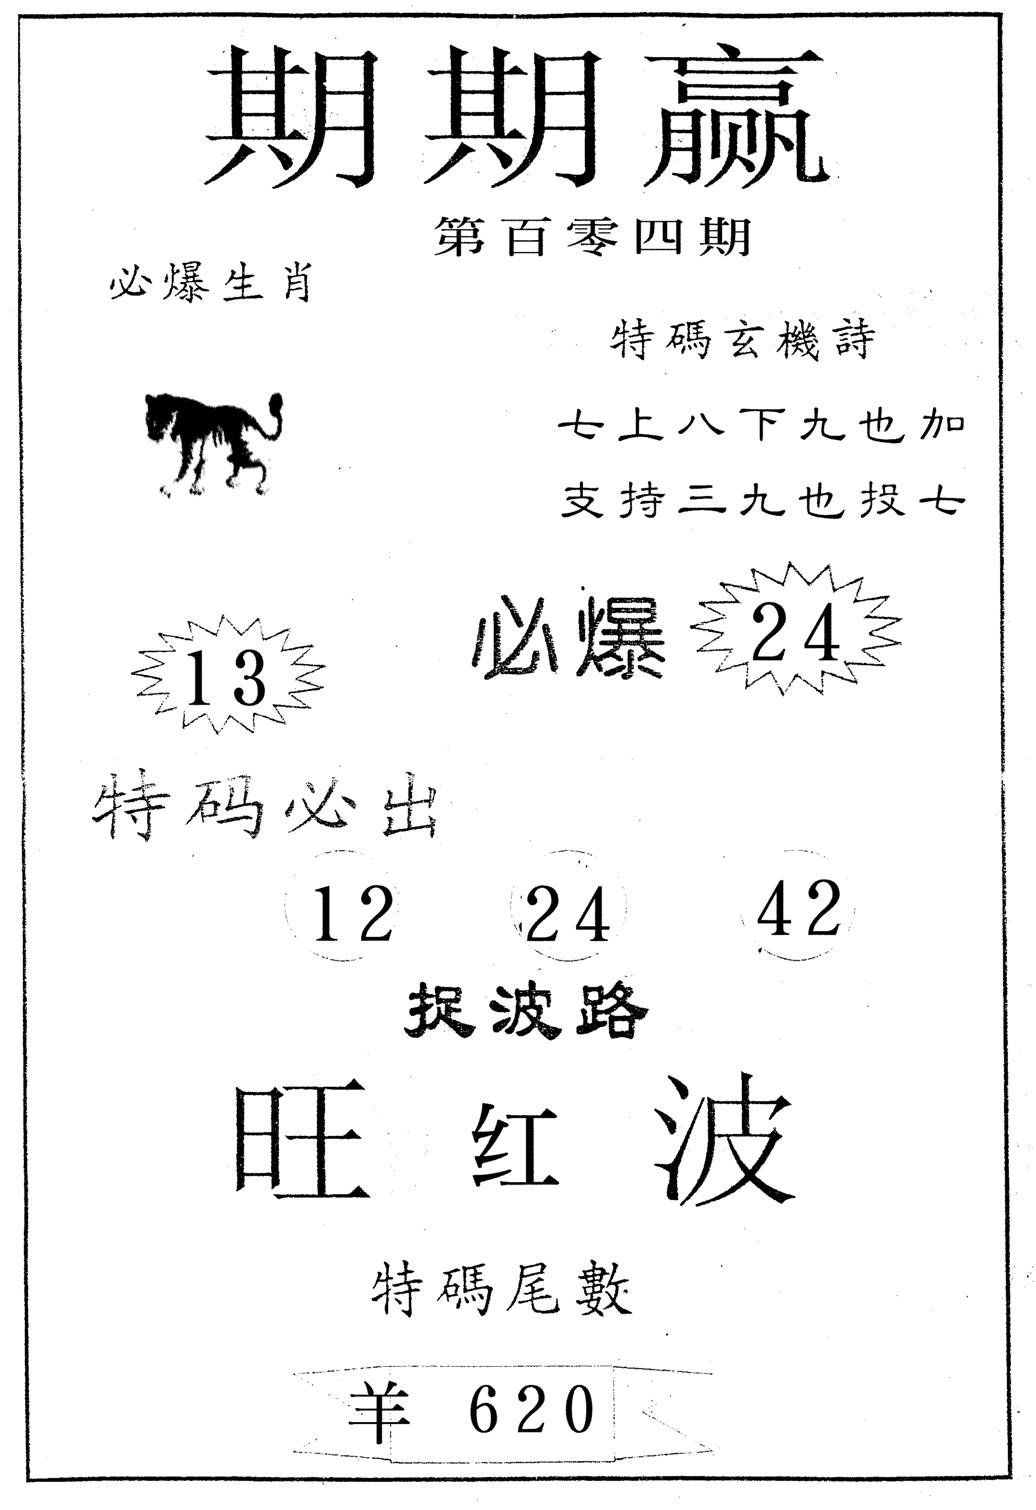 期期赢
第百零四期
必爆生肖
特碼玄機詩
七上八下九也加
支持三九也投七
必爆 24
13
特码必出
12 24 42
捉波路
旺红波
特碼尾數
羊 620